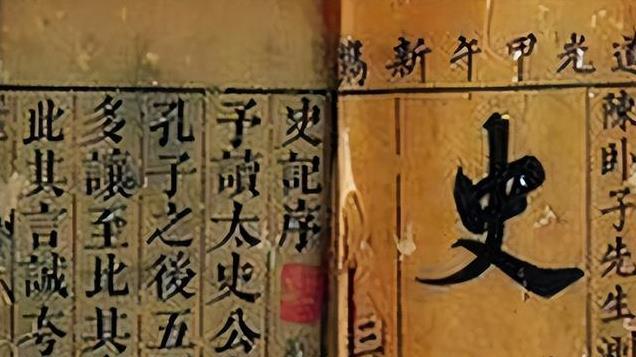 道光甲午新鐫
陳卧子先生測
史
三
史記序
予讀太史公
孔子之後五
多讓至比其
此其言誠夸